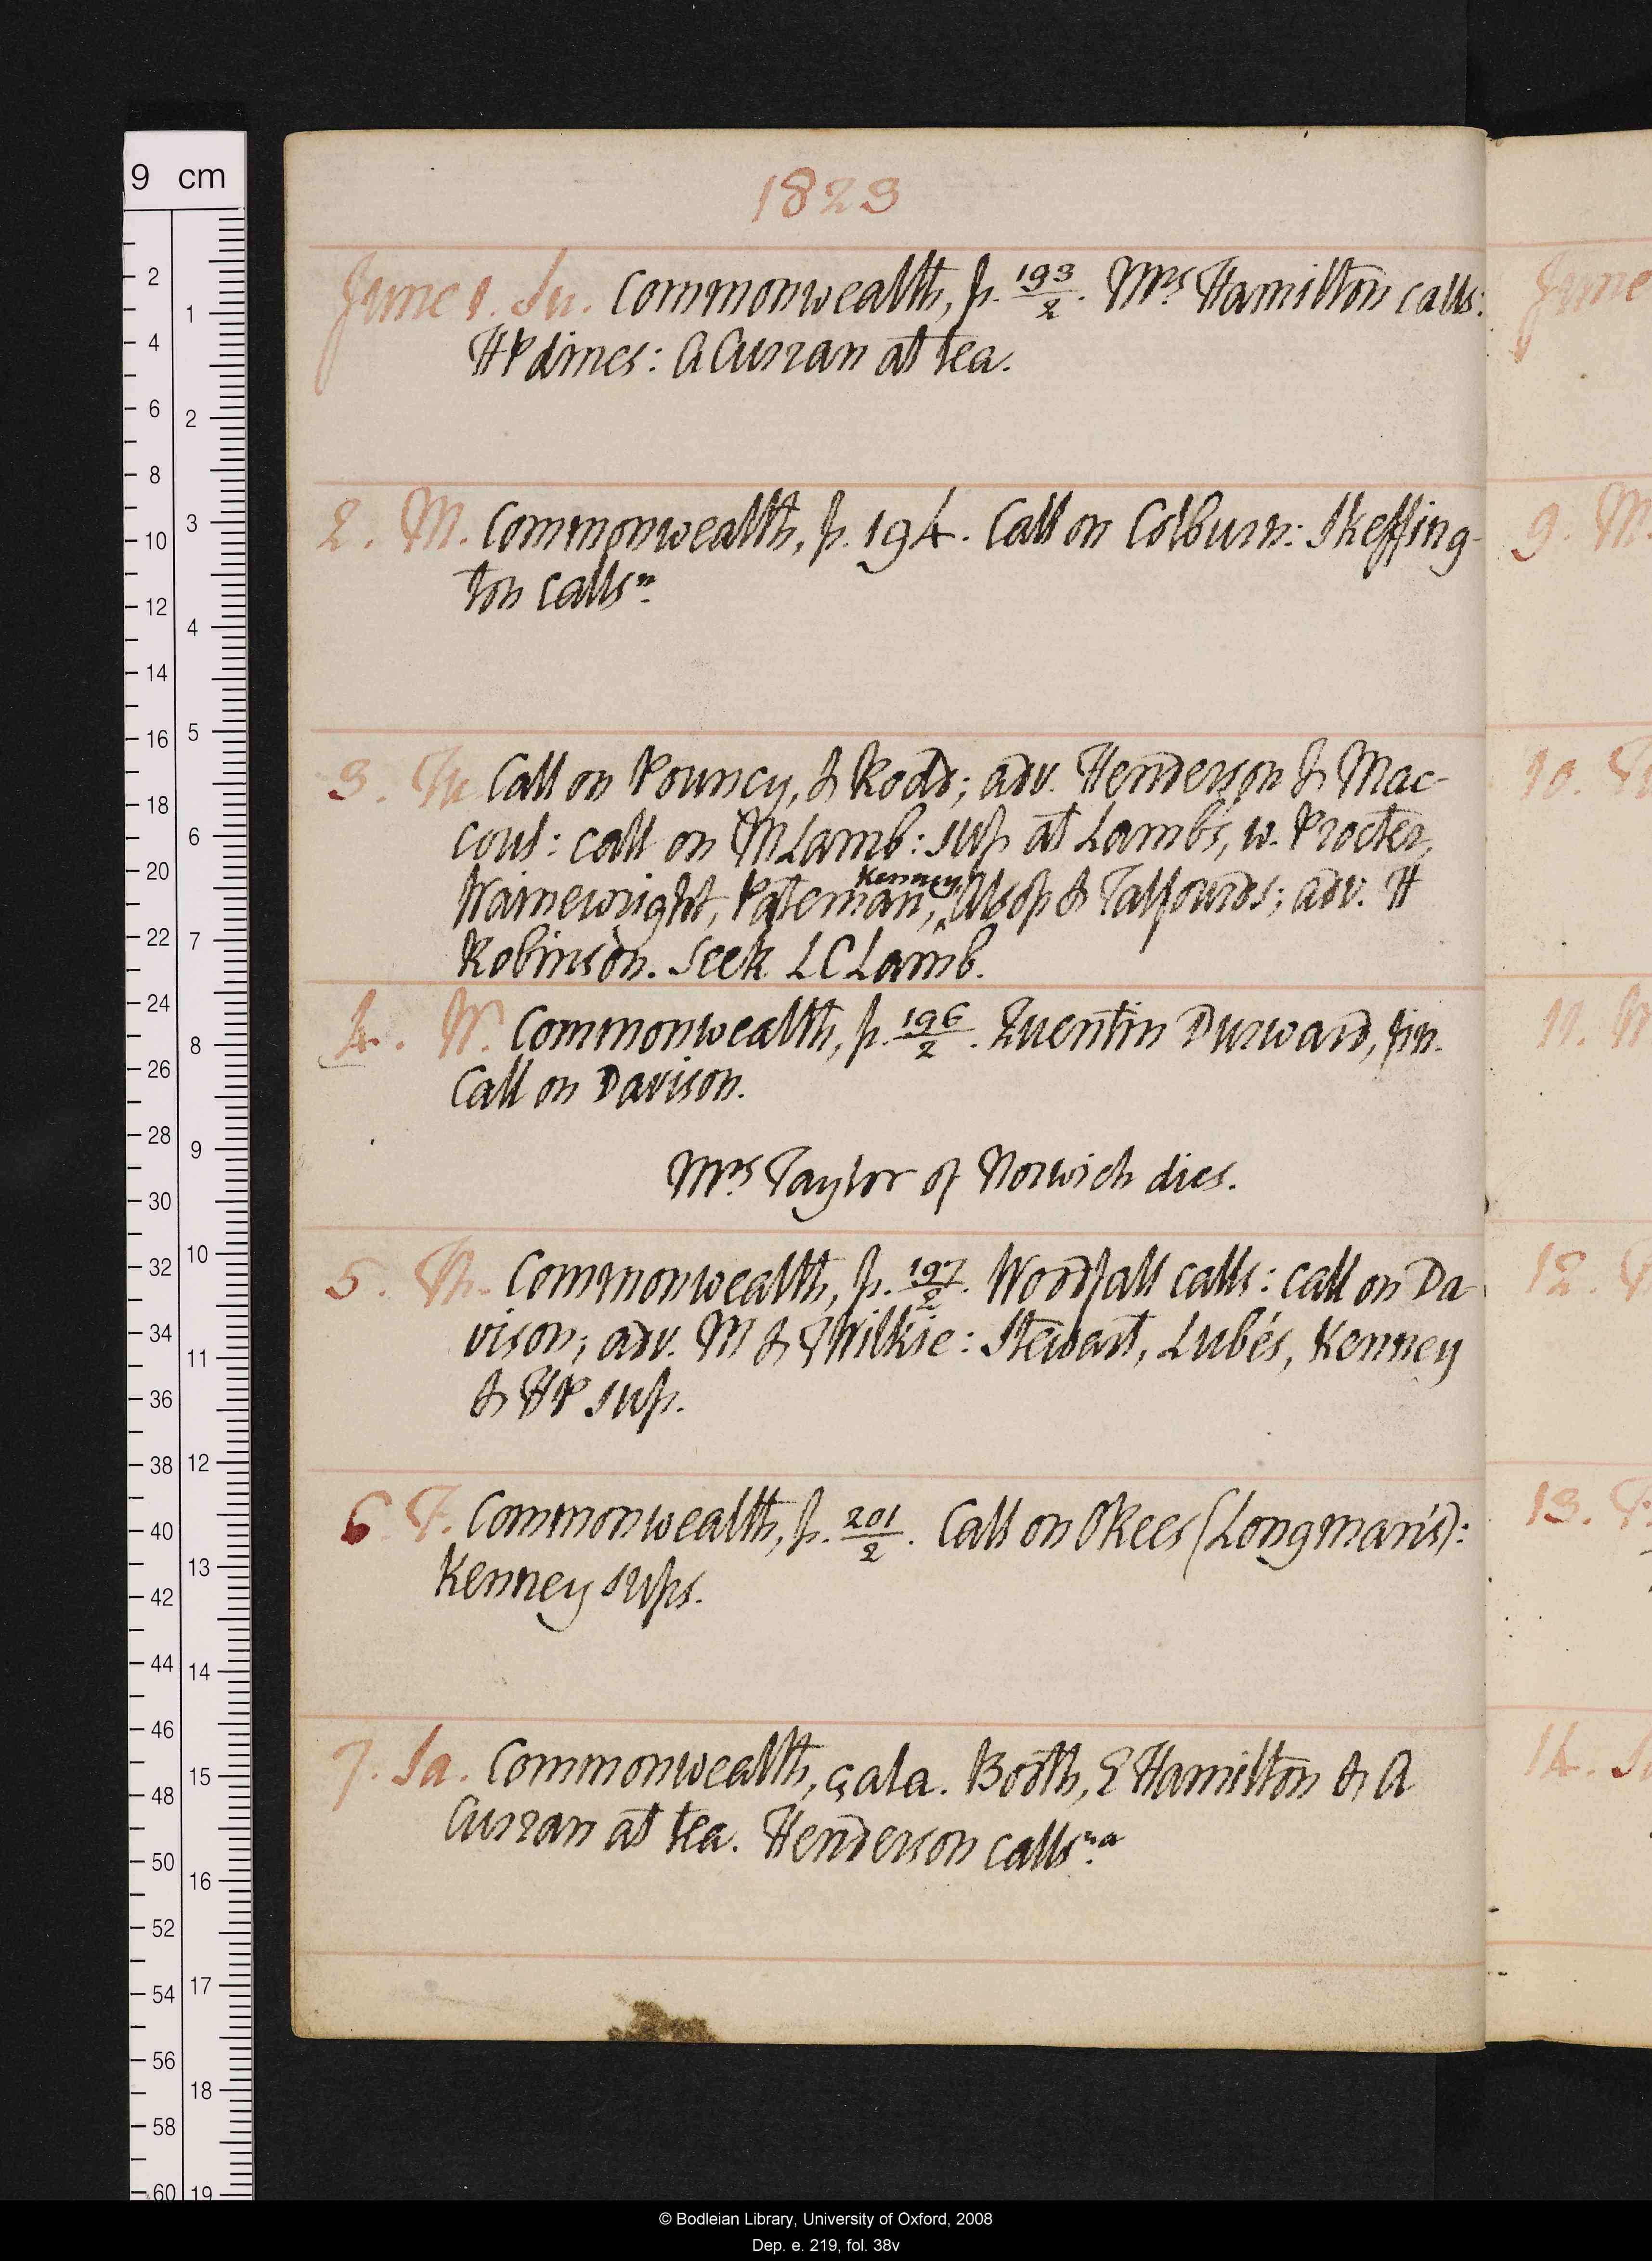 1823
June 1. Su. Commonwealth, p. 193/2. Mrs Hamilton calls:
HP dines: A Curran at tea.
2. M. Commonwealth, p. 194. Call on Colburn: Skeffing-
ton calls n.
3. Tu Call on Pouncy, & Rodd; adv. Henderson & Mac-
coul: call on M Lamb: sup at Lamb's, w. Procter,
Kenney
Wainewright, Pateman, ^ Alsop & Talfourds; adv. H
Robinson. Seek L C Lamb.
4. W. Commonwealth, p. 196/2. Quentin Durward, fin.
Call on Davison.
Mrs Taylor of Norwich dies.
5. Th. Commonwealth, p. 197/2. Woodfall calls: call on Da-
vison; adv. M & Wilkie: Stewart, Lubés, Kenney
& HP sup.
6. F. Commonwealth, p. 201/2. Call on Rees (Longman's):
Kenney sups.
7. Sa. Commonwealth, çala. Booth, E Hamilton & A
Curran at tea. Henderson calls na.
June
9. M.
10. Tu
11. W
12. T
13. F.
14. Sa
9 cm
2
4
6
8
10
12
14
16
18
20
22
24
26
28
30
32
34
36
38
40
42
44
46
48
50
52
54
56
58
60
1
2
3
4
5
6
7
8
9
10
11
12
13
14
15
16
17
18
19
© Bodleian Library, University of Oxford, 2008
Dep. e. 219, fol. 38v